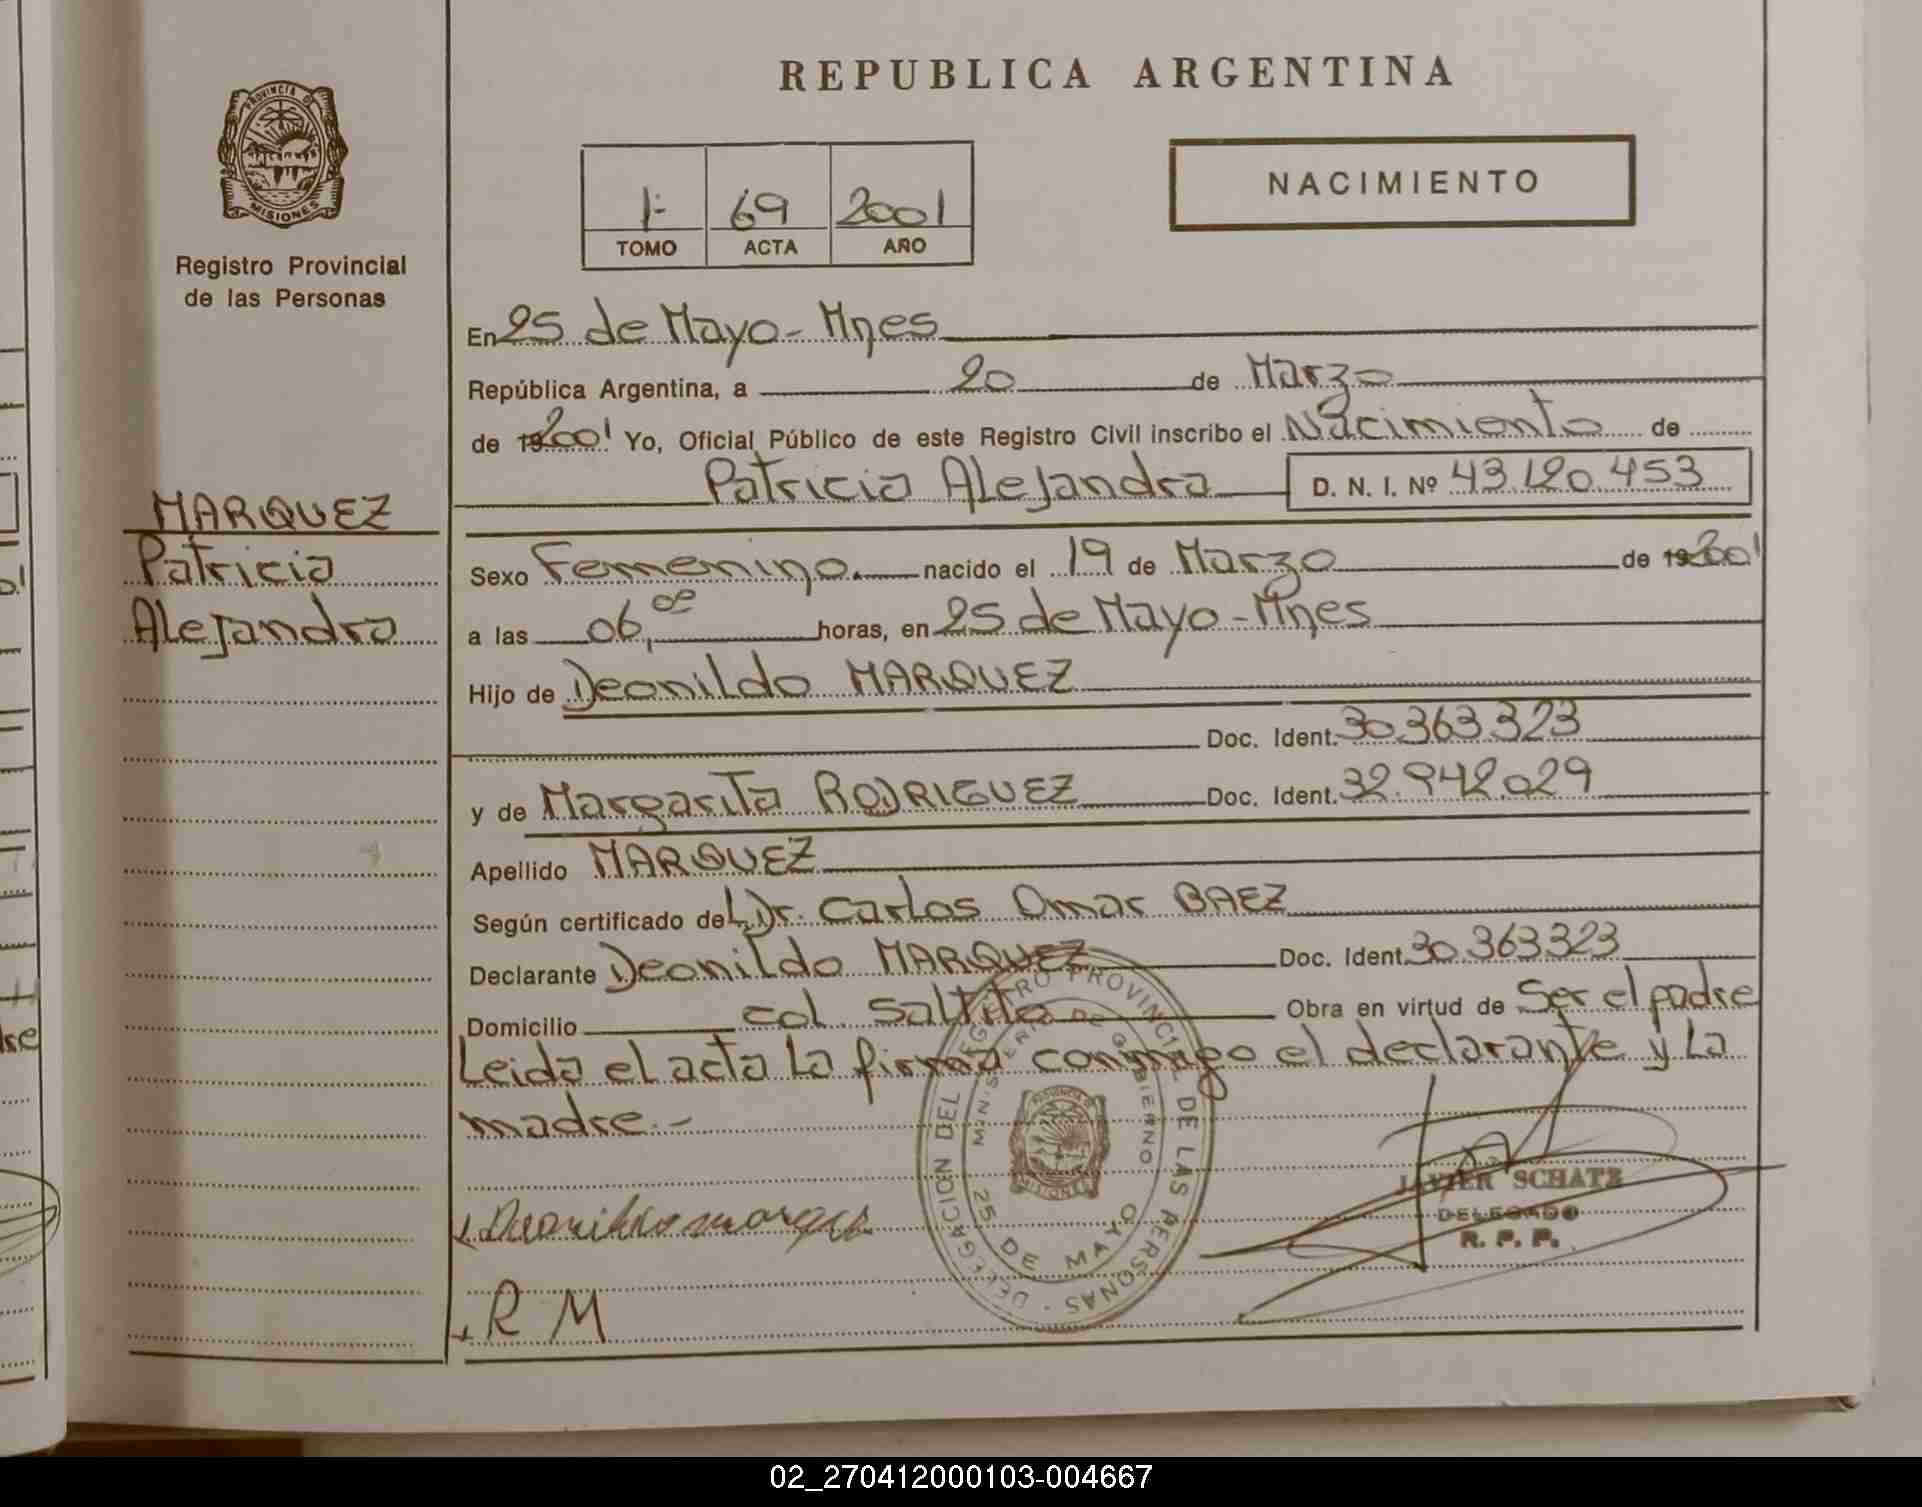 REPUBLICA ARGENTINA
PROVINCIA DE
MISIONES
Registro Provincial
de las Personas
1=
69
2001
TOMO
ACTA
AÑO
NACIMIENTO
En 25 de Mayo - Mnes
República Argentina, a 20 de Marzo
de 19 2001 Yo, Oficial Público de este Registro Civil inscribo el Nacimiento de
Patricia Alejandra D. N. I. Nº 43.120.453
MARQUEZ
Patricia
Alejandra
Sexo Femenino. nacido el 19 de Marzo de 19 2001
a las 06,oo horas, en 25 de Mayo - Mnes
Hijo de Deonildo MARQUEZ
Doc. Ident. 30.363.323
y de Margarita RODRIGUEZ Doc. Ident. 32.942.029
Apellido MARQUEZ
Según certificado del Dr. Carlos Omar BAEZ
Declarante Deonildo MARQUEZ Doc. Ident. 30.363323
Domicilio col. Saltito Obra en virtud de Ser el padre
Leida el acta La firma conmigo el declarante y La
madre.-
DELEGACION DEL REGISTRO PROVINCIAL DE LAS PERSONAS
MINISTERIO DE GOBIERNO
25 DE MAYO
PROVINCIA DE
MISIONES
JAVIER SCHATZ
DELEGADO
R. P. P.
R M
02_270412000103-004667